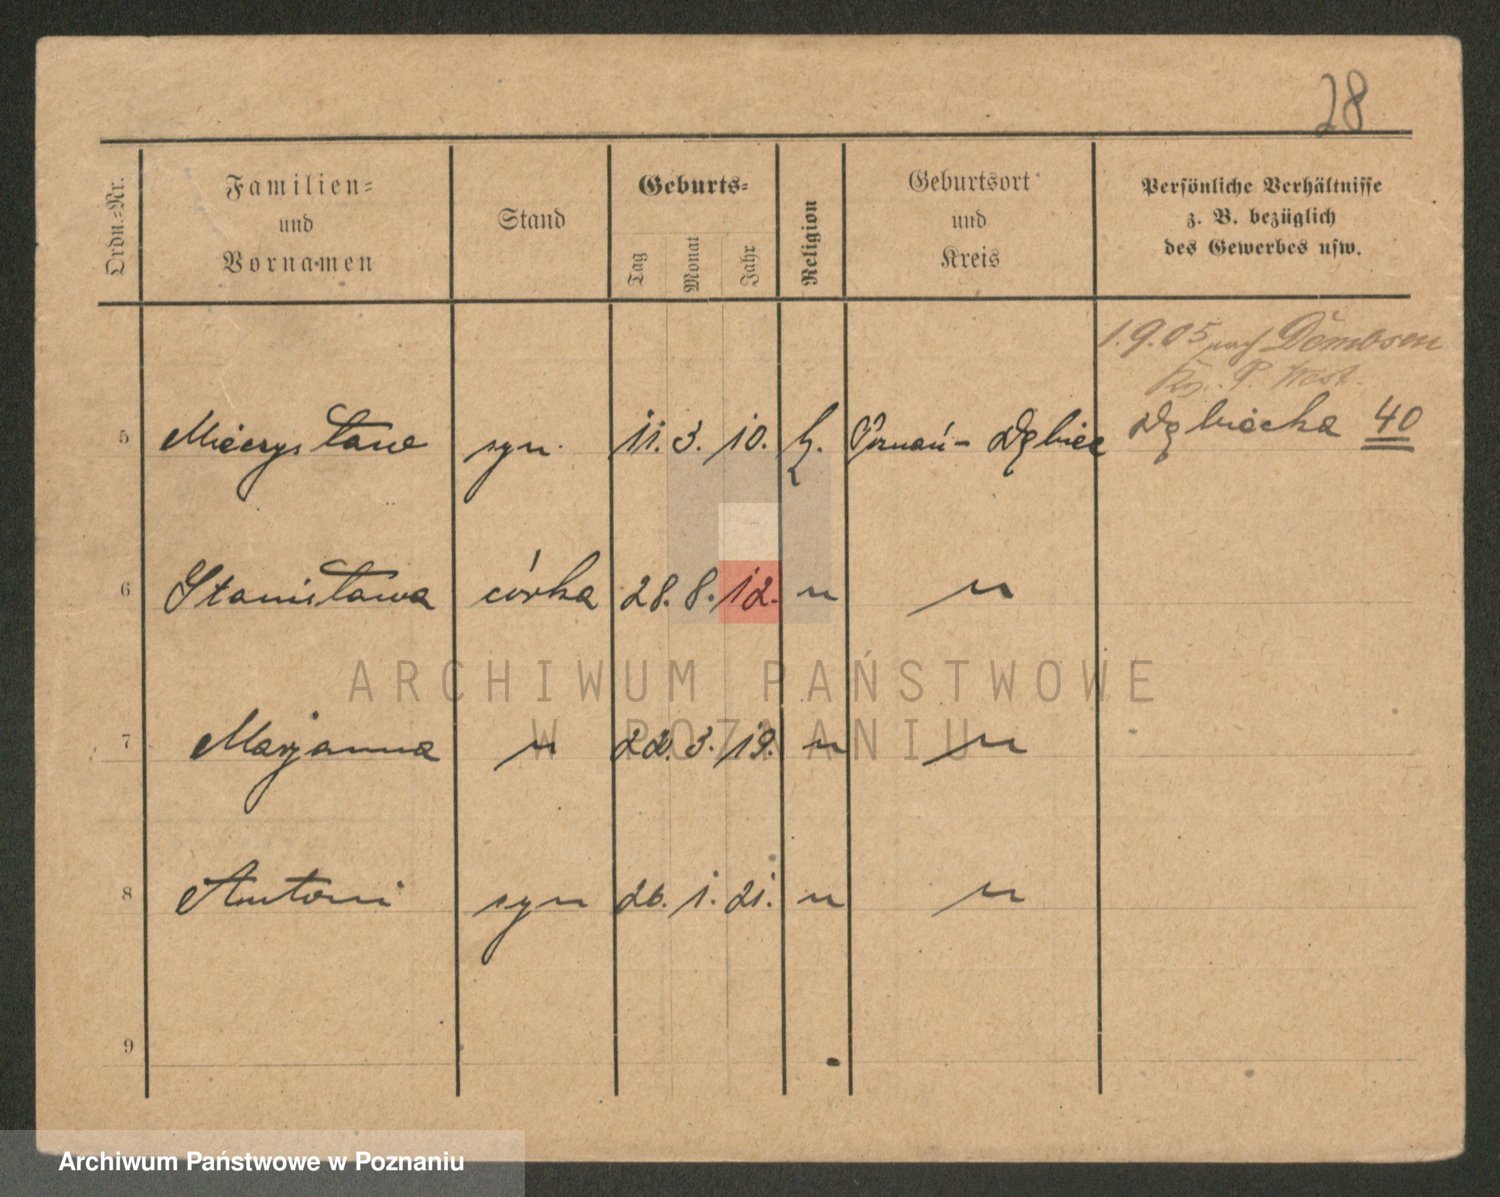 28
Ordn.-Nr.
Familien-
und
Vornamen
Stand
Geburts-
Tag
Monat
Jahr
Religion
Geburtsort
und
Kreis
Persönliche Verhältnisse
z. B. bezüglich
des Gewerbes usw.
1.9.05 nach Dembsen
P. West.
5 Mieczysław syn. 11. 3. 10. k. Poznań - Dębiec Dębiecka 40
6 Stanisława córka 28. 8. 12. " "
7 Marjanna " 22. 3. 19. " "
8 Antoni syn 26. 1. 21. " "
9
ARCHIWUM PAŃSTWOWE
W POZNANIU
Archiwum Państwowe w Poznaniu